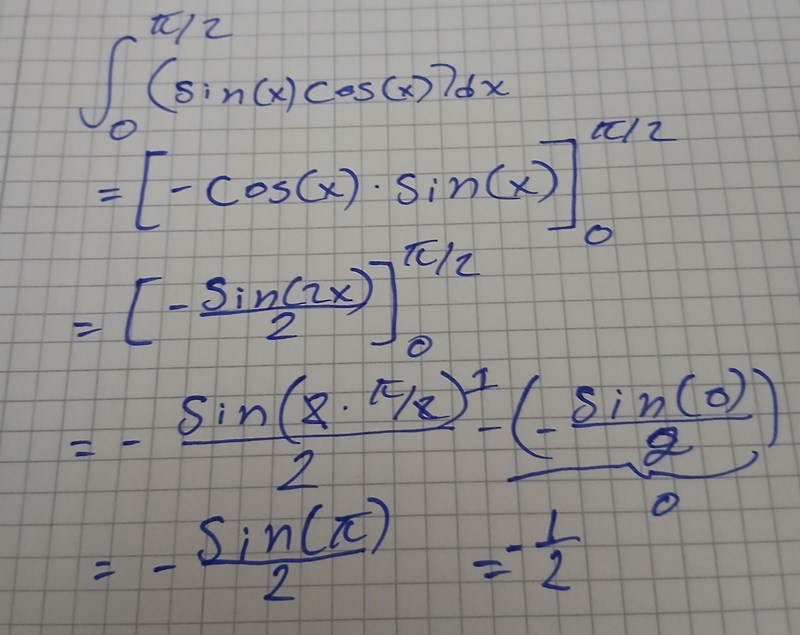 ∫₀^π/2 (sin(x)cos(x))dx
= [-cos(x)·sin(x)]₀^π/2
= [-sin(2x)/2]₀^π/2
= - sin(2·π/2)^1/2 - (- sin(0)/2) 0
= - sin(π)/2 = -1/2